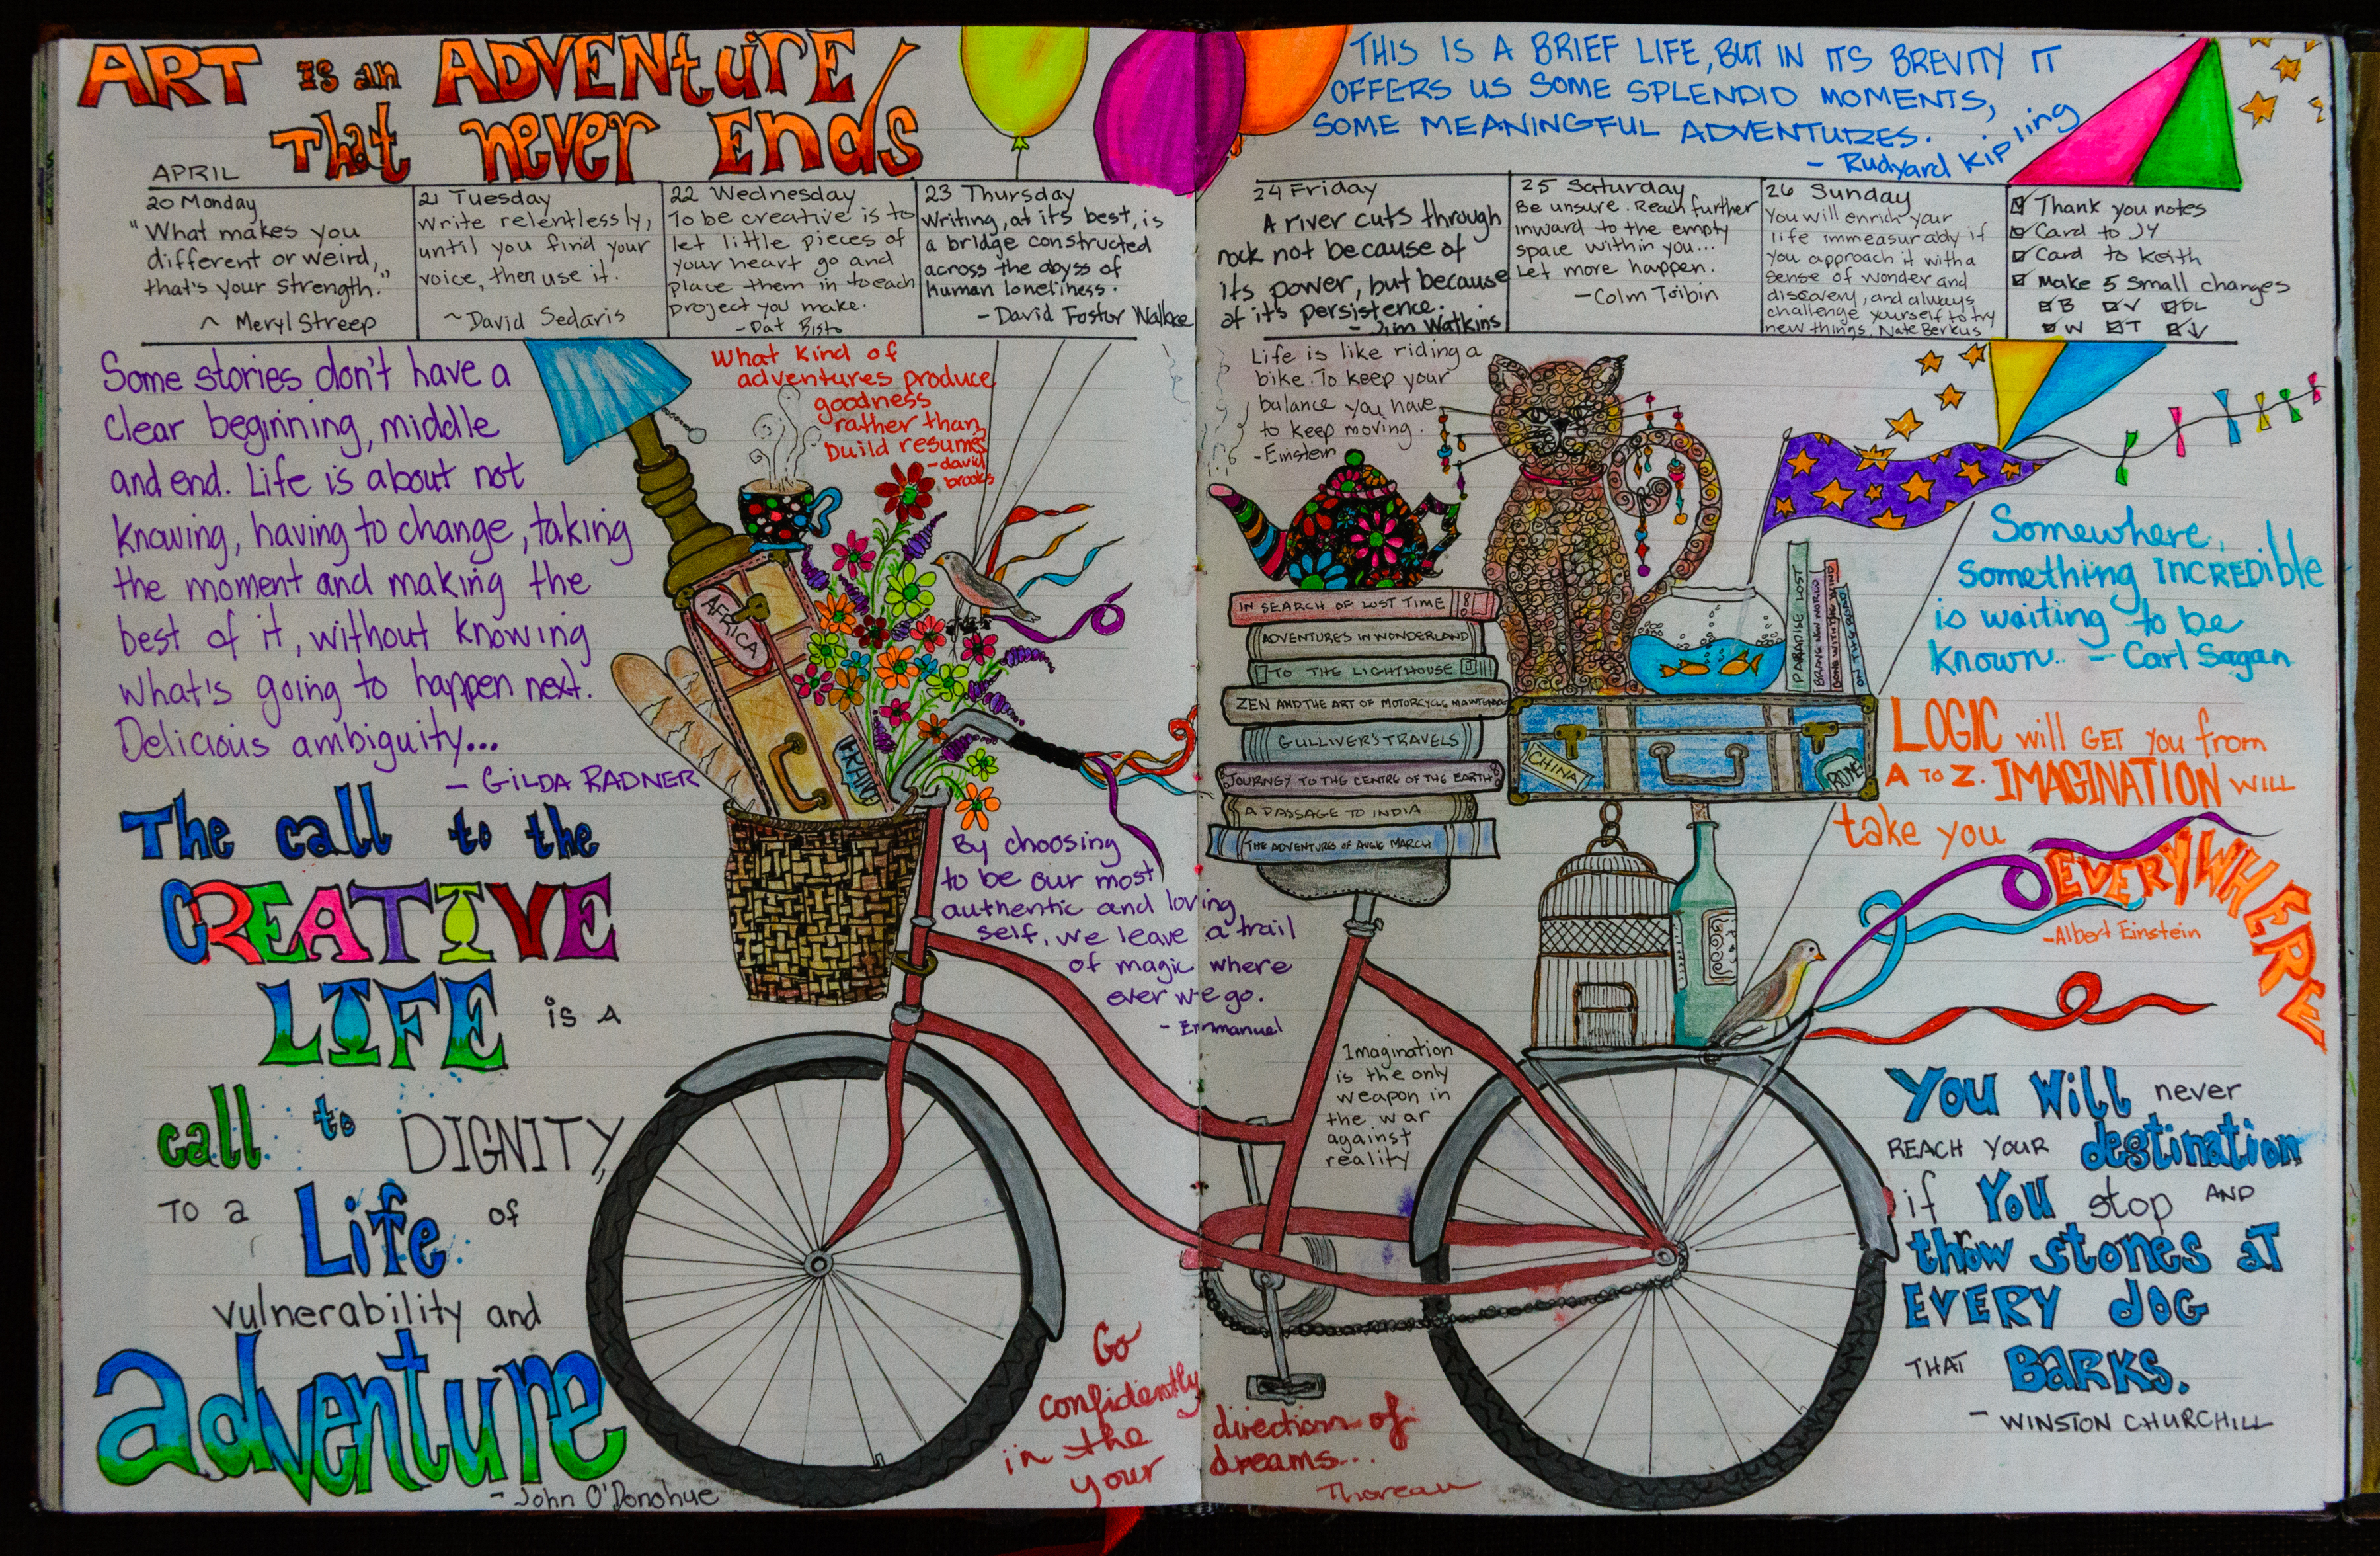 ART is an ADVENTURE
That never Ends
THIS IS A BRIEF LIFE, BUT IN ITS BREVITY IT
OFFERS US SOME SPLENDID MOMENTS,
SOME MEANINGFUL ADVENTURES.
- Rudyard Kipling
APRIL
20 Monday
"What makes you
different or weird,
that's your strength."
~ Meryl Streep
21 Tuesday
Write relentlessly,
until you find your
voice, then use it.
~David Sedaris
22 Wednesday
To be creative is to
let little pieces of
your heart go and
place them in to each
project you make.
- Pat
23 Thursday
Writing, at its best, is
a bridge constructed
across the abyss of
human loneliness.
- David Foster Wallace
24 Friday
A river cuts through
rock not because of
its power, but because
of it's persistence.
- Jim Watkins
25 Saturday
Be unsure. Reach further
inward to the empty
space within you...
Let more happen.
- Colm Toibin
26 Sunday
You will enrich your
life immeasurably if
you approach it with a
sense of wonder and
discovery, and always
challenge yourself to try
new things. Nate Berkus
Thank you notes
Card to JY
Card to Keith
Make 5 small changes
B V DL
W T
Some stories don't have a
clear beginning, middle
and end. Life is about not
knowing, having to change, taking
the moment and making the
best of it, without knowing
what's going to happen next.
Delicious ambiguity...
- GILDA RADNER
What kind of
adventures produce
goodness
rather than
build resumes
- david
brooks
AFRICA
FRANCE
The call to the
CREATIVE
LIFE is A
call to DIGNITY
TO a Life of
vulnerability and
adventure
- John O'Donohue
By choosing
to be our most
authentic and loving
self, we leave a trail
of magic where
ever we go.
- Emmanuel
Life is like riding a
bike. To keep your
balance you have
to keep moving.
- Einstein
IN SEARCH OF LOST TIME
ADVENTURES IN WONDERLAND
TO THE LIGHTHOUSE
ZEN AND THE ART OF MOTORCYCLE MAINTENANCE
GULLIVER'S TRAVELS
JOURNEY TO THE CENTRE OF THE EARTH
A PASSAGE TO INDIA
THE ADVENTURES OF AUGIE MARCH
PARADISE LOST
BRAVE NEW WORLD
GONE WITH THE WIND
ON THE ROAD
CHINA
ROME
Imagination
is the only
weapon in
the war
against
reality
Somewhere,
something INCREDible
is waiting to be
known. - Carl Sagan
LOGIC will GET you from
A TO Z. IMAGINATION WILL
take you
EVERYWHERE
- Albert Einstein
You Will never
REACH YOUR destination
if You stop AND
throw stones aT
EVERY dOG
THAT BARKS.
- WINSTON CHURCHILL
Go
confidently
in the
your
direction of
dreams...
Thoreau